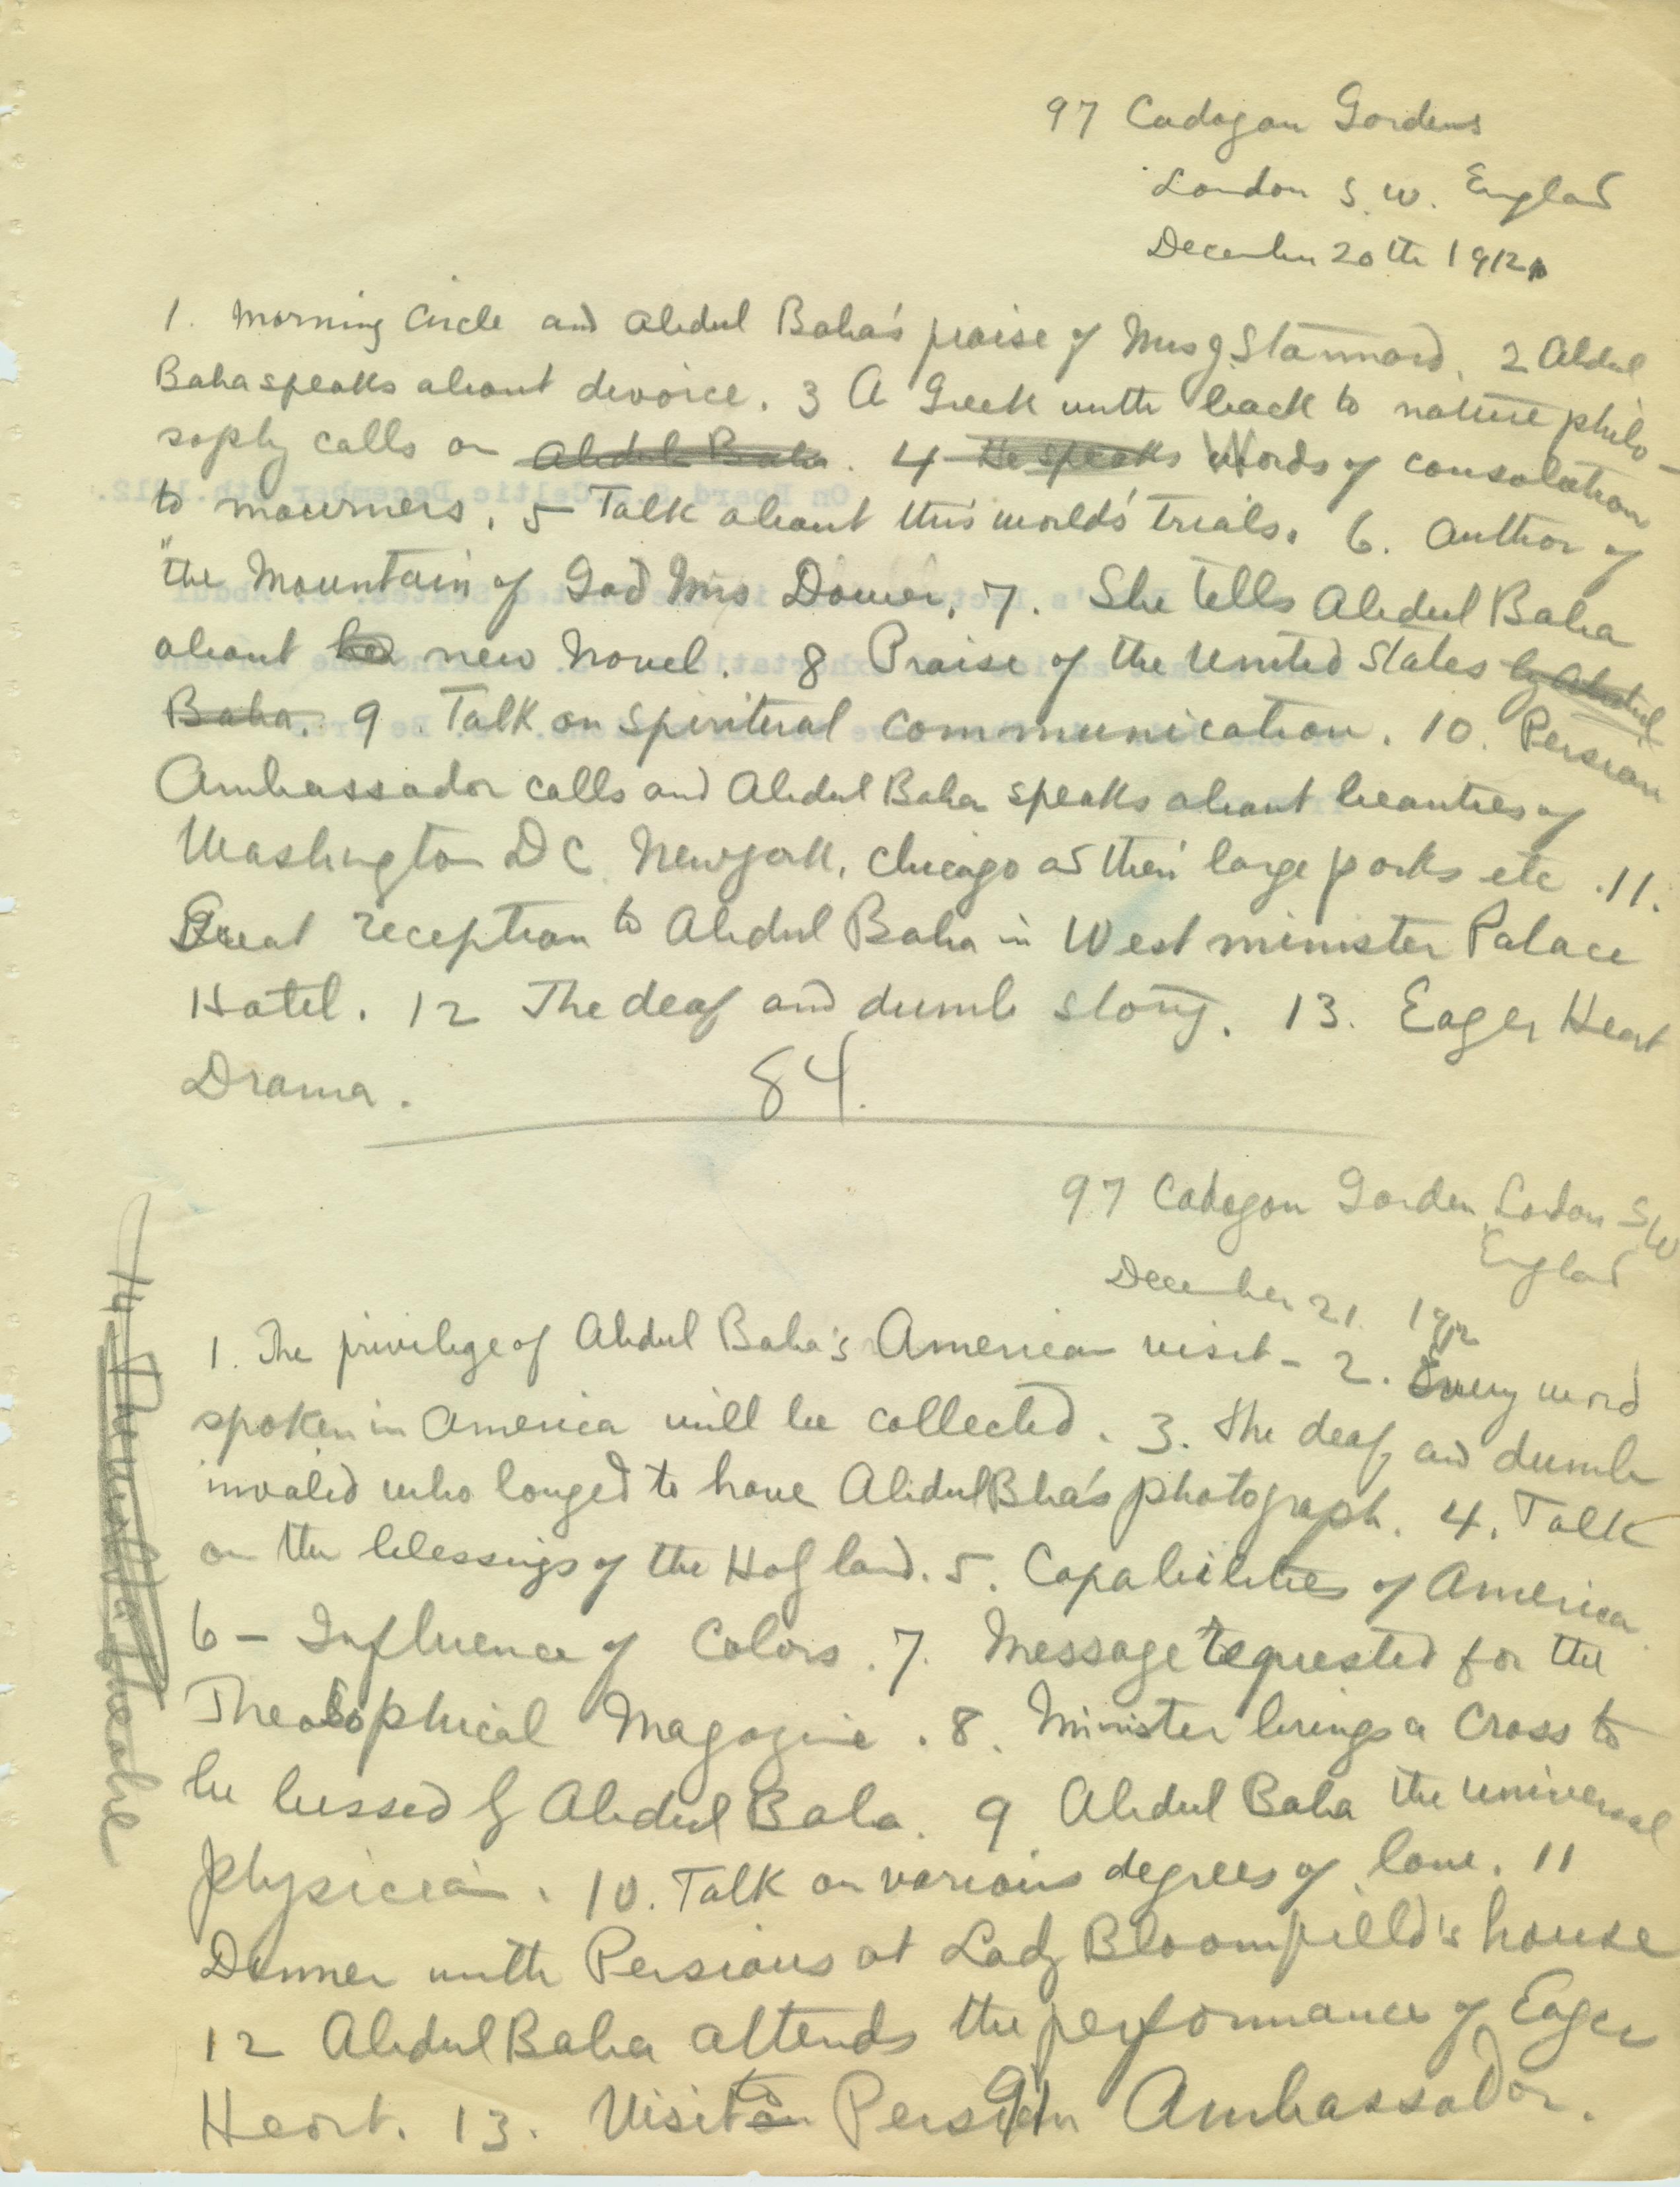 97 Cadogan Gardens
London S. W. England
December 20th 1912
1. Morning Circle and Abdul Baha's praise of Mrs J. Stannard. 2 Abdul
Baha speaks about divorce. 3 A Greek with back to nature philo-
sophy calls on Abdul Baha. 4 He speaks Words of consolation
to mourners. 5 Talk about this world's trials. 6. Author of
"the Mountain of God Mrs 7. She tells Abdul Baha
about her new Novel. 8 Praise of the United States by Abdul
Baha. 9. Talk on spiritual communication. 10. Persian
Ambassador calls and Abdul Baha speaks about beauties of
Washington D C New York, Chicago and their large parks etc. 11.
Great reception to Abdul Baha in Westminister Palace
Hotel. 12 The deaf and dumb story. 13. Eager Heart
Drama.
84.
97 Cadogan Garden London SW
England
December 21. 1912
1. The privilege of Abdul Baha's American visit - 2. Every word
spoken in America will be collected. 3. The deaf and dumb
invalid who longed to have Abdul Bha's photograph. 4. Talk
on the blessings of the Holy land. 5. Capabilities of America.
6 - Influence of Colors. 7. Message requested for the
Theosophical Magazine. 8. Minister brings a Cross to
be blessed by Abdul Baha. 9 Abdul Baha the universal
physician. 10. Talk on various degrees of love. 11
Dinner with Persians at Lady Bloomfield's house
12 Abdul Baha attends the performance of Eager
Heart. 13. Visit to Persian Ambassador.
91
On Board S.S. Celtic December 5th, 1912.